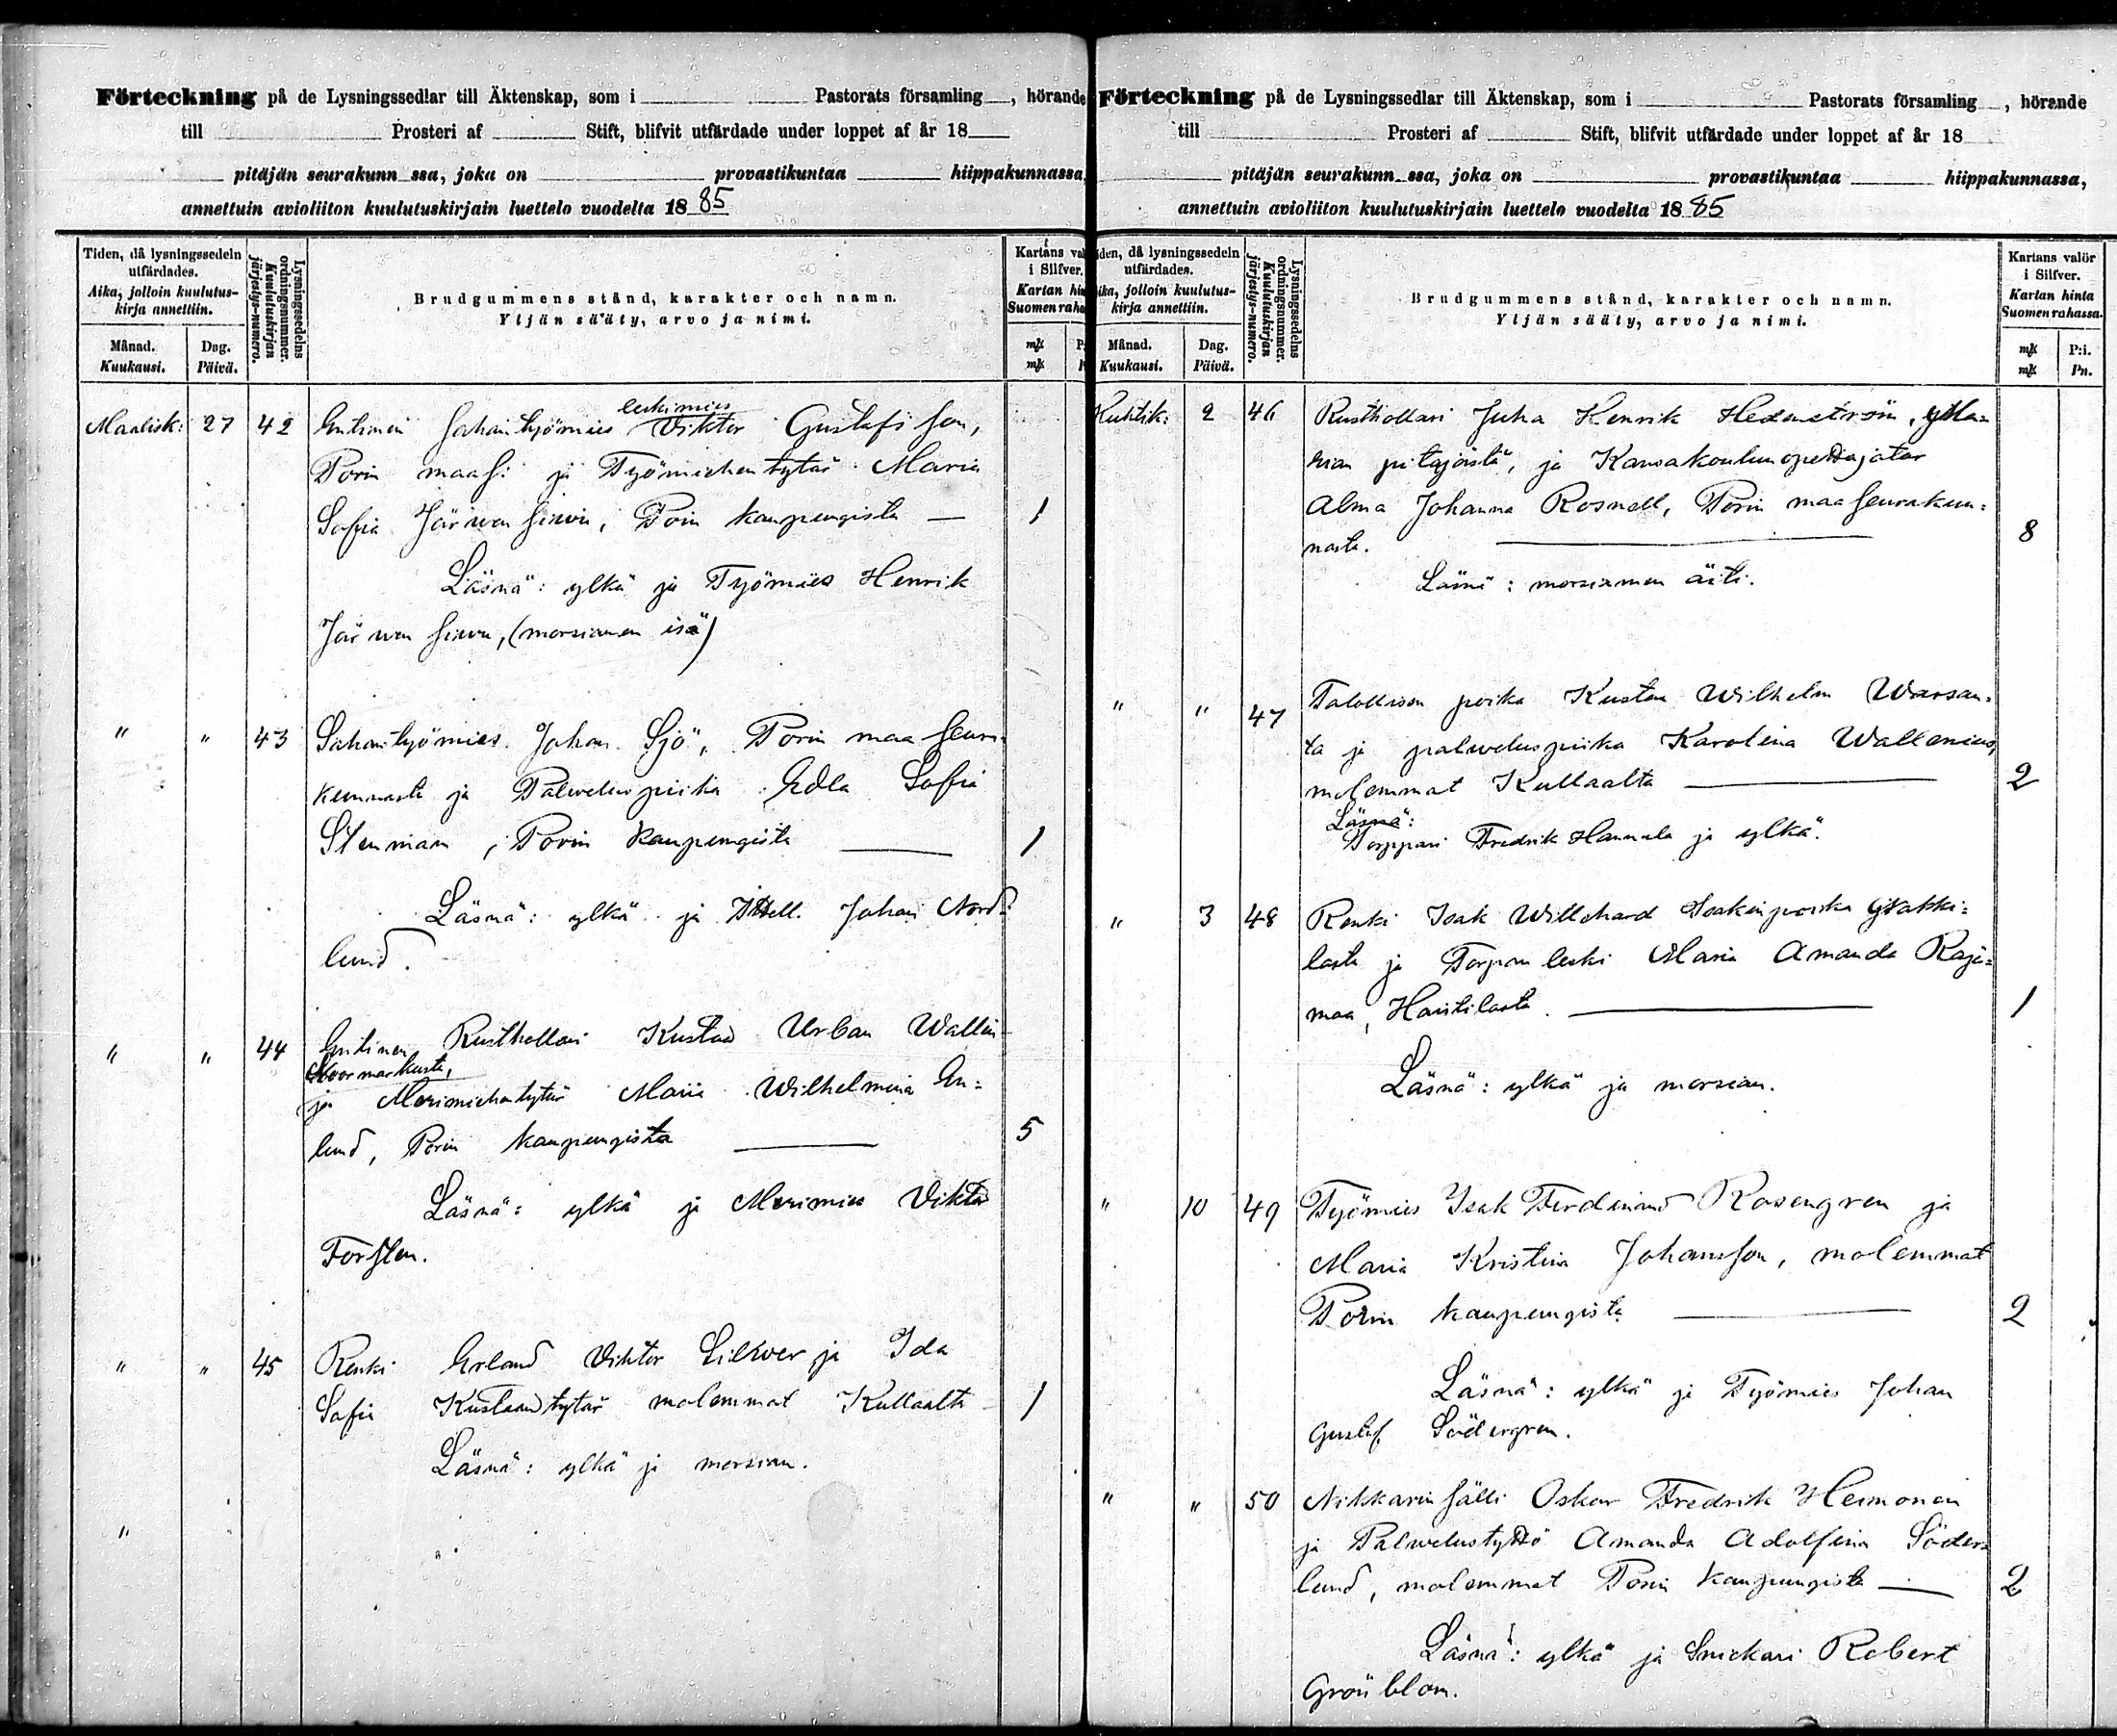 Förteckning på de Lysningssedlar till Äktenskap, som i Pastorats församling, hörande
till Prosteri af Stift, blifvit utfärdade under loppet af år 18
pitäjän seurakunn ssa, joka on provastikuntaa hiippakunnassa,
annettuin avioliiton kuulutuskirjain luettelo vuodelta 1885
Tiden, då lysningssedeln utfärdades.
Aika, jolloin kuulutus-
kirja annettiin.
Månad. Dag.
Kuukausi. Päivä.
Lysningssedelns ordningsnummer.
Kuulutuskirjan järjestys-numero.
Brudgummens stånd, karakter och namn.
Yljän sääty, arvo ja nimi.
Kartans val
i Silfver.
Kartan hin
Suomen raha
mk
mk
leskimies
Maalisk: 27 42 Entinen Sahantyömies Viktor Gustafsson,
Porin maas: ja Työmiehentytär Maria
Sofia Järwensiwu, Porin kaupungista — 1
Läsnä: ylkä ja Työmies Henrik
Järwensiwu, (morsiamen isä)
" " 43 Sahantyömies Johan Sjö, Porin maaseura-
kunnasta ja Palweluspiika Edla Sofia
Stenman, Porin kaupungista — 1
Läsnä: ylkä ja Johan Nord-
lund.
" " 44 Entinen Rusthollari Kustaa Urban Wallin
Noormarkusta,
ja Merimiehentytär Maria Wilhelmina En=
lund, Porin kaupungista — 5
Läsnä: ylkä ja Merimies Viktor
Forssten.
" " 45 Renki Erland Viktor Silfver ja Ida
Sofia Kustaantytär molemmat Kullaalta — 1
Läsnä: ylkä ja morsian.
"
Förteckning på de Lysningssedlar till Äktenskap, som i Pastorats församling, hörande
till Prosteri af Stift, blifvit utfärdade under loppet af år 18
pitäjän seurakunn ssa, joka on provastikuntaa hiippakunnassa,
annettuin avioliiton kuulutuskirjain luettelo vuodelta 1885
iden, då lysningssedeln
utfärdades.
ika, jolloin kuulutus-
kirja annettiin.
Månad. Dag.
Kuukausi. Päivä.
Lysningssedelns ordningsnummer.
Kuulutuskirjan järjestys-numero.
Brudgummens stånd, karakter och namn.
Yljän sääty, arvo ja nimi.
Kartans valör
i Silfver.
Kartan hinta
Suomen rahassa.
mk P:i.
mk Pn.
Huhtik: 2 46 Rusthollari Juha Henrik Hedenström,
pitäjästä, ja Kansakoulunopettajatar
Alma Johanna Rosnell, Porin maaseurakun=
nasta. — 8
Läsnä: morsiamen äiti.
" " 47 Talollisen poika Kustaa Wilhelm Warsan=
ta ja palweluspiika Karolina Wallenius,
molemmat Kullaalta — 2
Läsnä:
Torppari Fredrik Hannula ja ylkä.
" 3 48 Renki Isak Willehard Isakinpoika
lasta ja Torpan leski Maria Amanda Raja=
maa, Haistilasta. — 1
Läsnä: ylkä ja morsian.
" 10 49 Työmies Isak Ferdinand Rosengren ja
Maria Kristina Johansson, molemmat
Porin kaupungista — 2
Läsnä: ylkä ja Työmies Johan
Gustaf Södergren.
" " 50 Nikkarinsälli Oskar Fredrik Heimonen
ja Palwelustyttö Amanda Adolfina Söder=
lund, molemmat Porin kaupungista — 2
Läsnä: ylkä ja Snickari Robert
Grönblom.